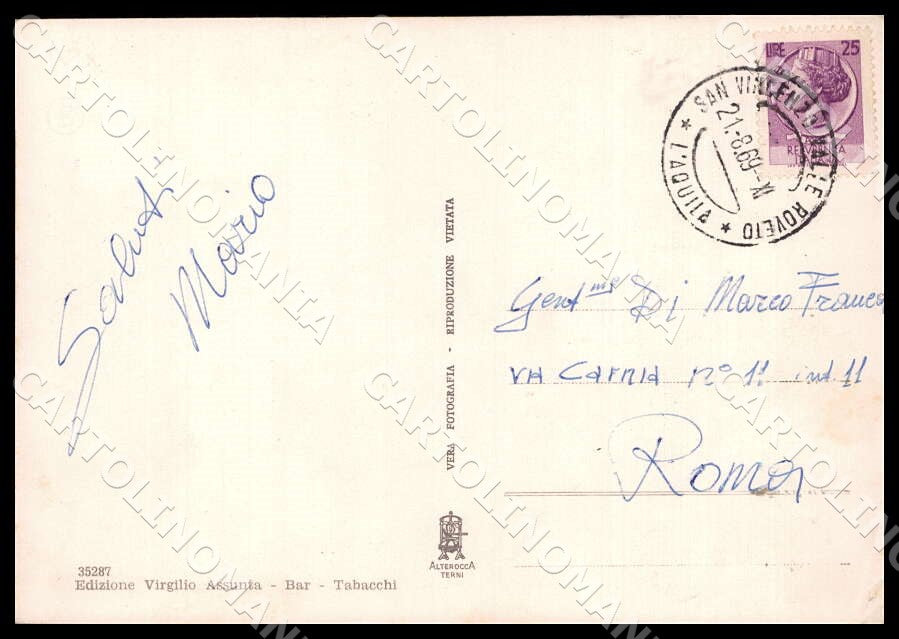 LIRE 25
SAN VINCENZO VALLE ROVETO
* L'AQUILA *
21-8.69-XI
Saluti
Mario
VERA FOTOGRAFIA - RIPRODUZIONE VIETATA
Gent.me Di Marco Franco
VIA CARNIA N° 11 int 11
Roma
35287
Edizione Virgilio Assunta - Bar - Tabacchi
ALTEROCCA
TERNI
CARTOLINOMANIA